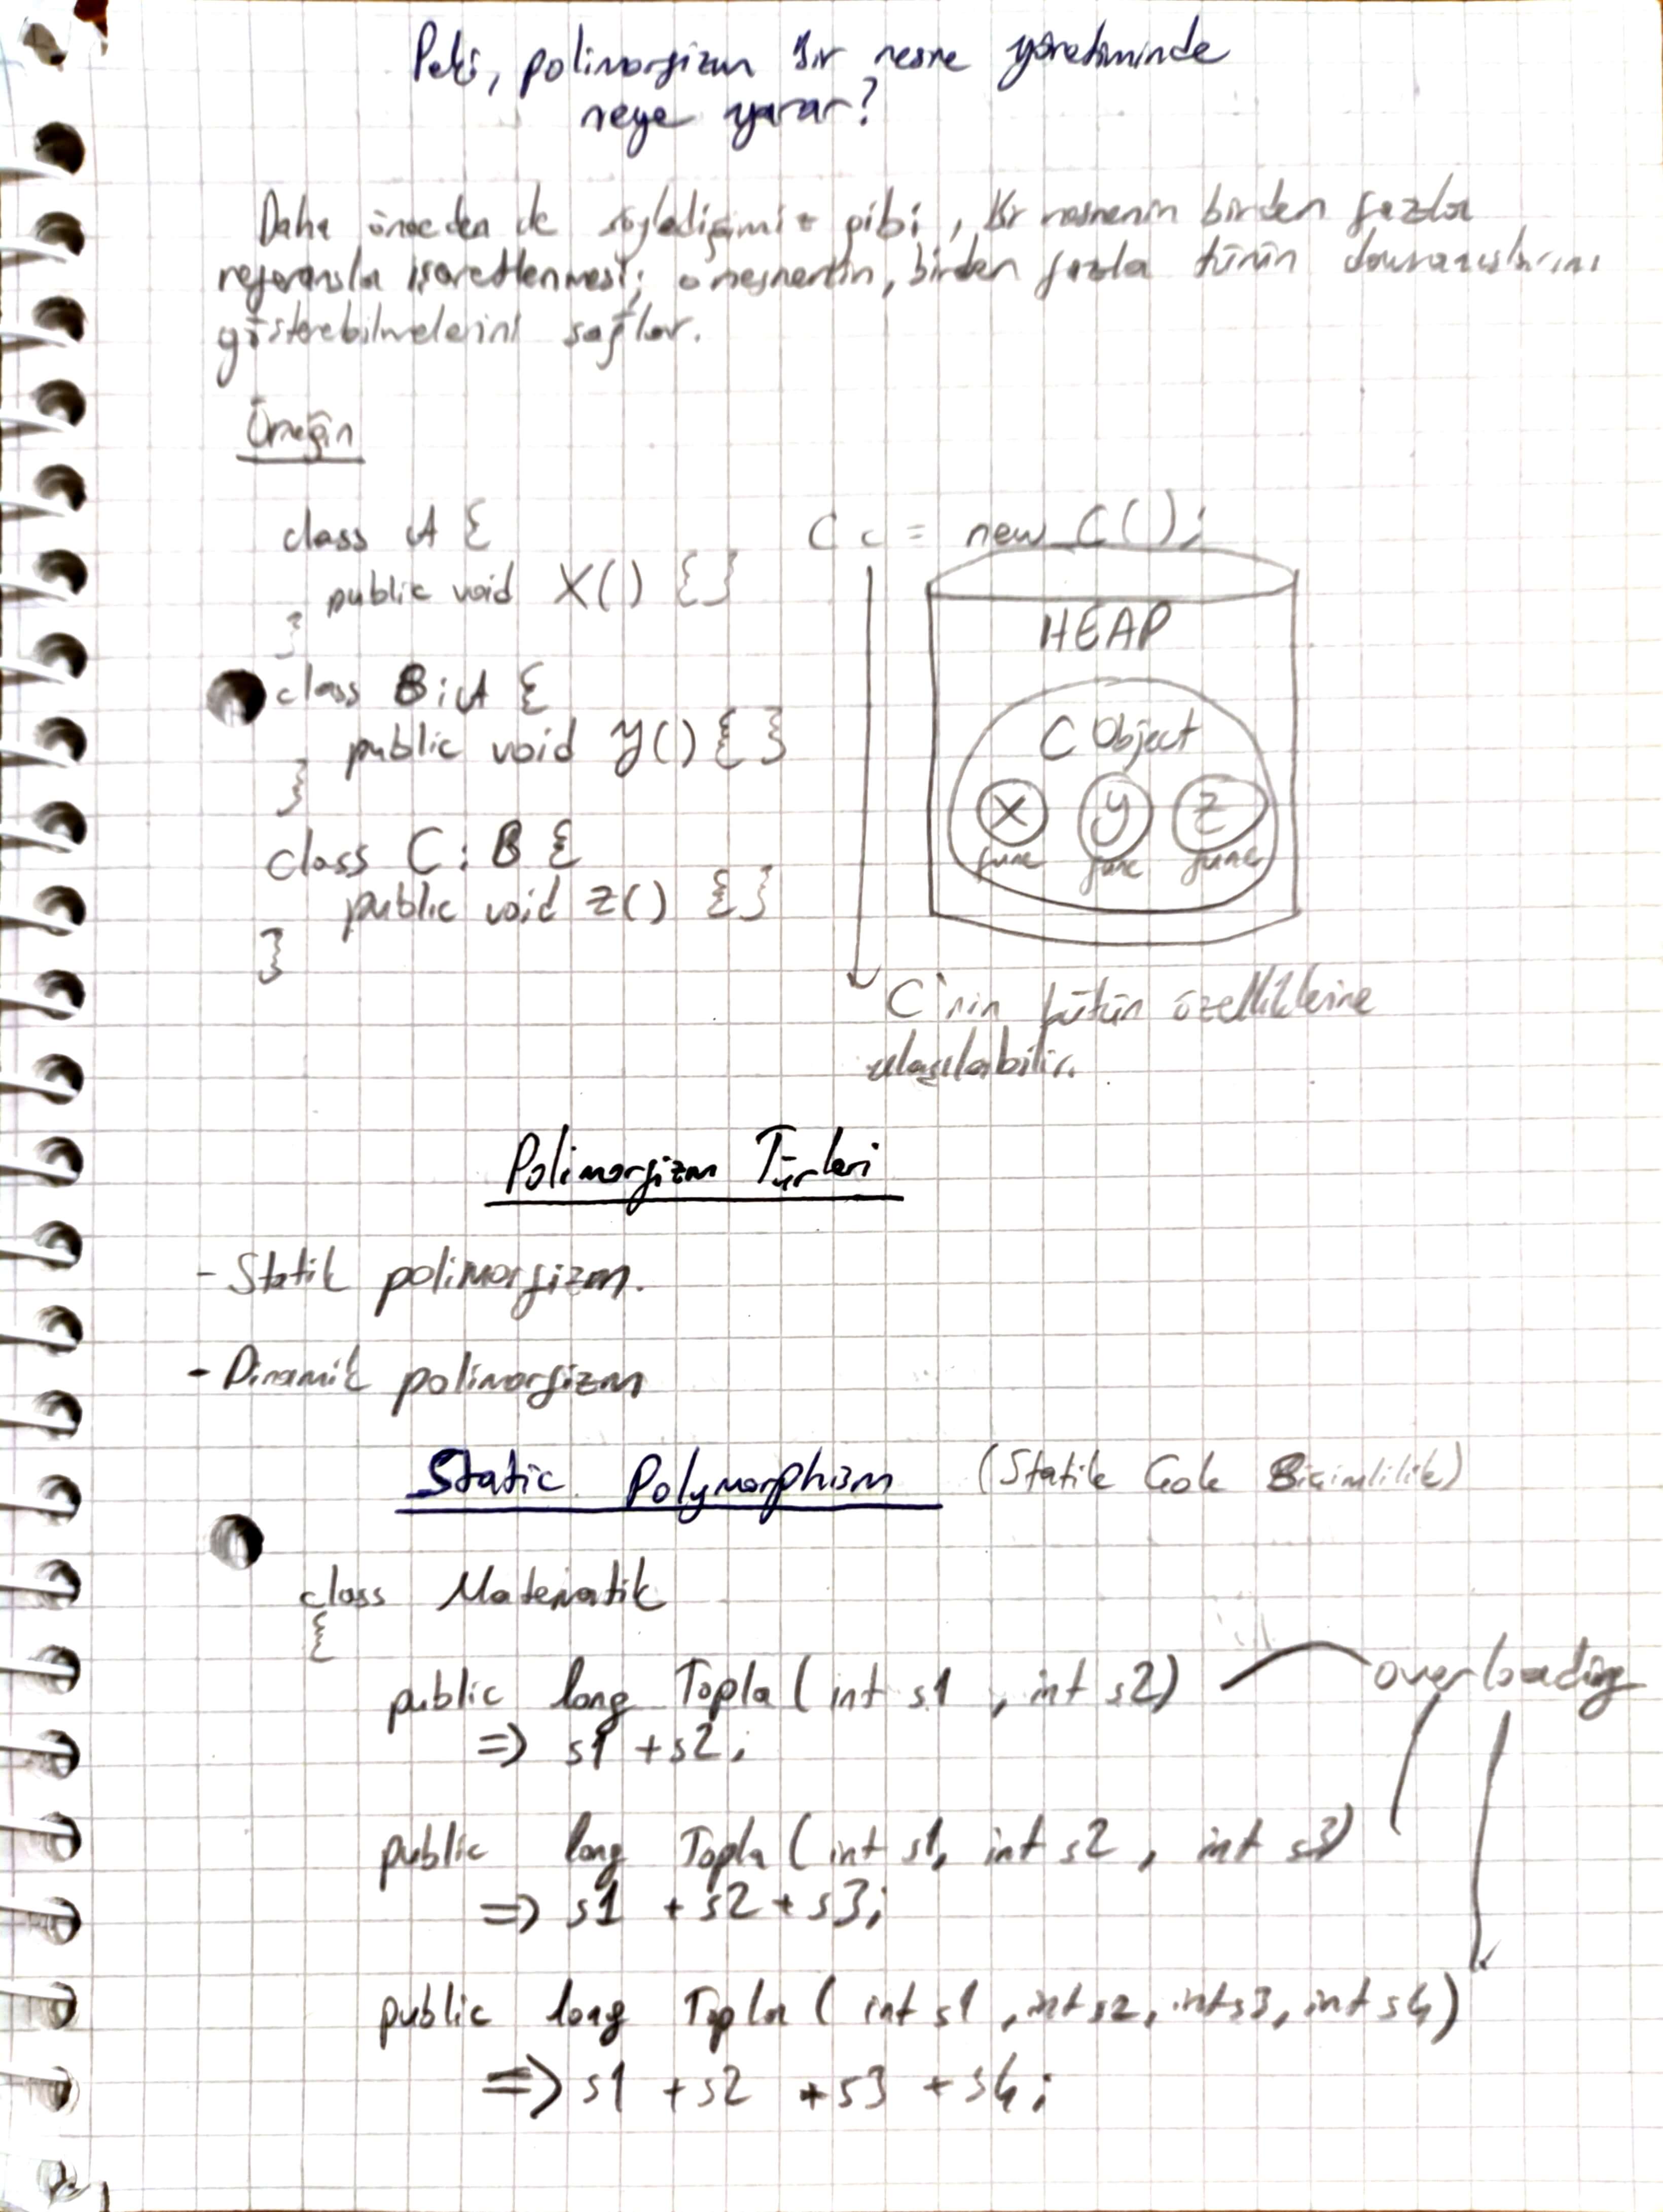 Peki, polimorfizm bir nesne yönetiminde
neye yarar?
Daha önceden de söylediğimiz gibi, bir nesnenin birden fazla
referansla işaretlenmesi; o nesnenin, birden fazla türün davranışlarını
gösterebilmelerini sağlar.
Örneğin
class A {
public void X() {}
}
class B : A {
public void Y() {}
}
class C : B {
public void Z() {}
}
C c = new C();
HEAP
C Object
X Y Z
func func func
C'nin bütün özelliklerine
ulaşılabilir.
Polimorfizm Türleri
- Statik polimorfizm.
- Dinamik polimorfizm
Static Polymorphism (Statik Çok Biçimlilik)
class Matematik
{
public long Topla (int s1, int s2) overloading
=> s1 + s2;
public long Topla (int s1, int s2, int s3)
=> s1 + s2 + s3;
public long Topla (int s1, int s2, int s3, int s4)
=> s1 + s2 + s3 + s4;